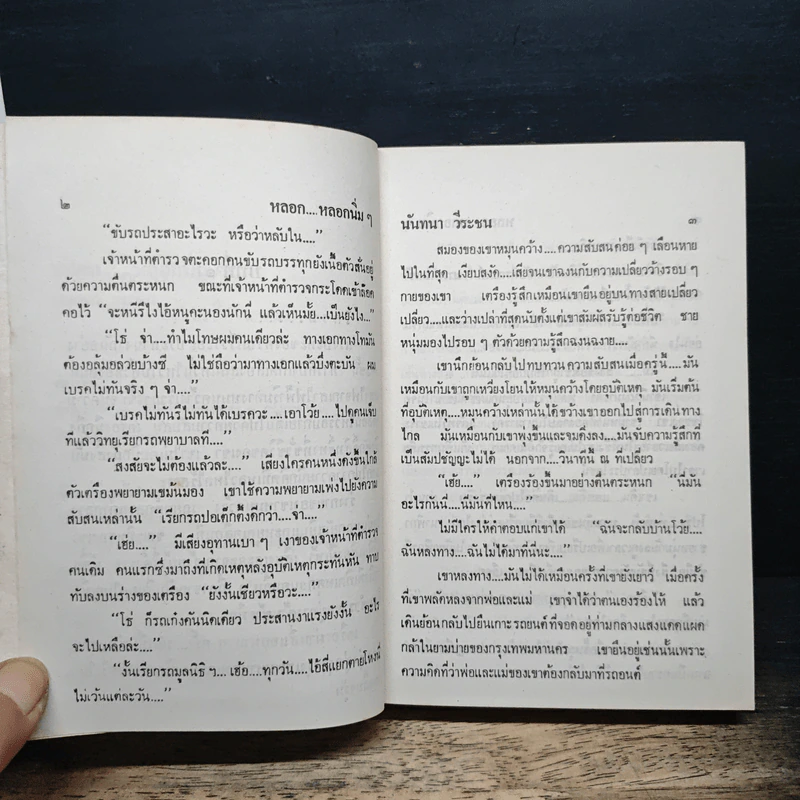 ๒ หลอก....หลอกนิ่ม ๆ
“ขับรถประสาอะไรวะ หรือว่าหลับใน....”
เจ้าหน้าที่ตำรวจตะคอกคนขับรถบรรทุกยังเนื้อตัวสั่นอยู่
ด้วยความตื่นตระหนก ขณะที่เจ้าหน้าที่ตำรวจกระโดดเข้าล็อค
คอไว้ “จะหนีรึไงไอ้หนูคะนองนักนี่ แล้วเห็นมั้ย...เป็นยังไง...”
“โธ่ จ่า....ทำไมโทษผมคนเดียวล่ะ ทางเอกทางโทมัน
ต้องอลุ้มอล่วยบ้างซี ไม่ใช่ถือว่ามาทางเอกแล้วบึ่งตะบัน ผม
เบรคไม่ทันจริง ๆ จ่า....”
“เบรคไม่ทันรึไม่ทันได้เบรควะ....เอาโว้ย....ไปดูคนเจ็บ
ทีแล้ววิทยุเรียกรถพยาบาลที....”
“สงสัยจะไม่ต้องแล้วล่ะ....” เสียงใครคนหนึ่งดังขึ้นใกล้
ตัวเครื่องพยายามเขม้นมอง เขาใช้ความพยายามเพ่งไปยังความ
สับสนเหล่านั้น “เรียกรถปอเต็กตึ๊งดีกว่า....จ่า....”
“เฮ่ย....” มีเสียงอุทานเบา ๆ เงาของเจ้าหน้าที่ตำรวจ
คนเดิม คนแรกซึ่งมาถึงที่เกิดเหตุหลังอุบัติเหตุกระทันหัน ทาบ
ทับลงบนร่างของเครื่อง “ยังงั้นเชียวหรือวะ....”
“โธ่ ก็รถเก๋งคันนิดเดียว ประสานงาแรงยังงั้น อะไร
จะไปเหลือล่ะ....”
“งั้นเรียกรถมูลนิธิ ฯ...เฮ้อ....ทุกวัน....ไอ้สี่แยกตายโหงนี่
ไม่เว้นแต่ละวัน....”
นันทนา วีระชน ๓
สมองของเขาหมุนคว้าง....ความสับสนค่อย ๆ เลือนหาย
ไปในที่สุด เงียบสงัด....เสียจนเขาฉงนกับความเปลี่ยวว้างรอบ ๆ
กายของเขา เครื่องรู้สึกเหมือนเขายืนอยู่บนทางสายเปลี่ยว
เปลี่ยว....และว่างเปล่าที่สุดนับตั้งแต่เขาสัมผัสรับรู้ต่อชีวิต ชาย
หนุ่มมองไปรอบ ๆ ตัวด้วยความรู้สึกฉงนฉงาย....
เขานึกย้อนกลับไปทบทวนความสับสนเมื่อครู่นี้....มัน
เหมือนกับเขาถูกเหวี่ยงโยนให้หมุนคว้างโดยอุบัติเหตุ มันเริ่มต้น
ที่อุบัติเหตุ....หมุนคว้างเหล่านั้นได้ขว้างเขาออกไปสู่การเดินทาง
ไกล มันเหมือนกับเขาพุ่งขึ้นและจมดิ่งลง....มันจับความรู้สึกที่
เป็นสัมปชัญญะไม่ได้ นอกจาก....วินาทีนี้ ณ ที่เปลี่ยว
“เฮ้ย....” เครื่องร้องขึ้นมาอย่างตื่นตระหนก “นี่มัน
อะไรกันนี่....นี่มันที่ไหน....”
ไม่มีใครให้คำตอบแก่เขาได้ “ฉันจะกลับบ้านโว้ย....
ฉันหลงทาง....ฉันไม่ได้มาที่นี่นะ....”
เขาหลงทาง....มันไม่ได้เหมือนครั้งที่เขายังเยาว์ เมื่อครั้ง
ที่เขาพลัดหลงจากพ่อและแม่ เขาจำได้ว่าตนเองร้องไห้ แล้ว
เดินย้อนกลับไปยืนเกาะรถยนต์ที่จอดอยู่ท่ามกลางแสงแดดแผด
กล้าในยามบ่ายของกรุงเทพมหานคร เขายืนอยู่เช่นนั้นเพราะ
ความคิดที่ว่าพ่อและแม่ของเขาต้องกลับมาที่รถยนต์